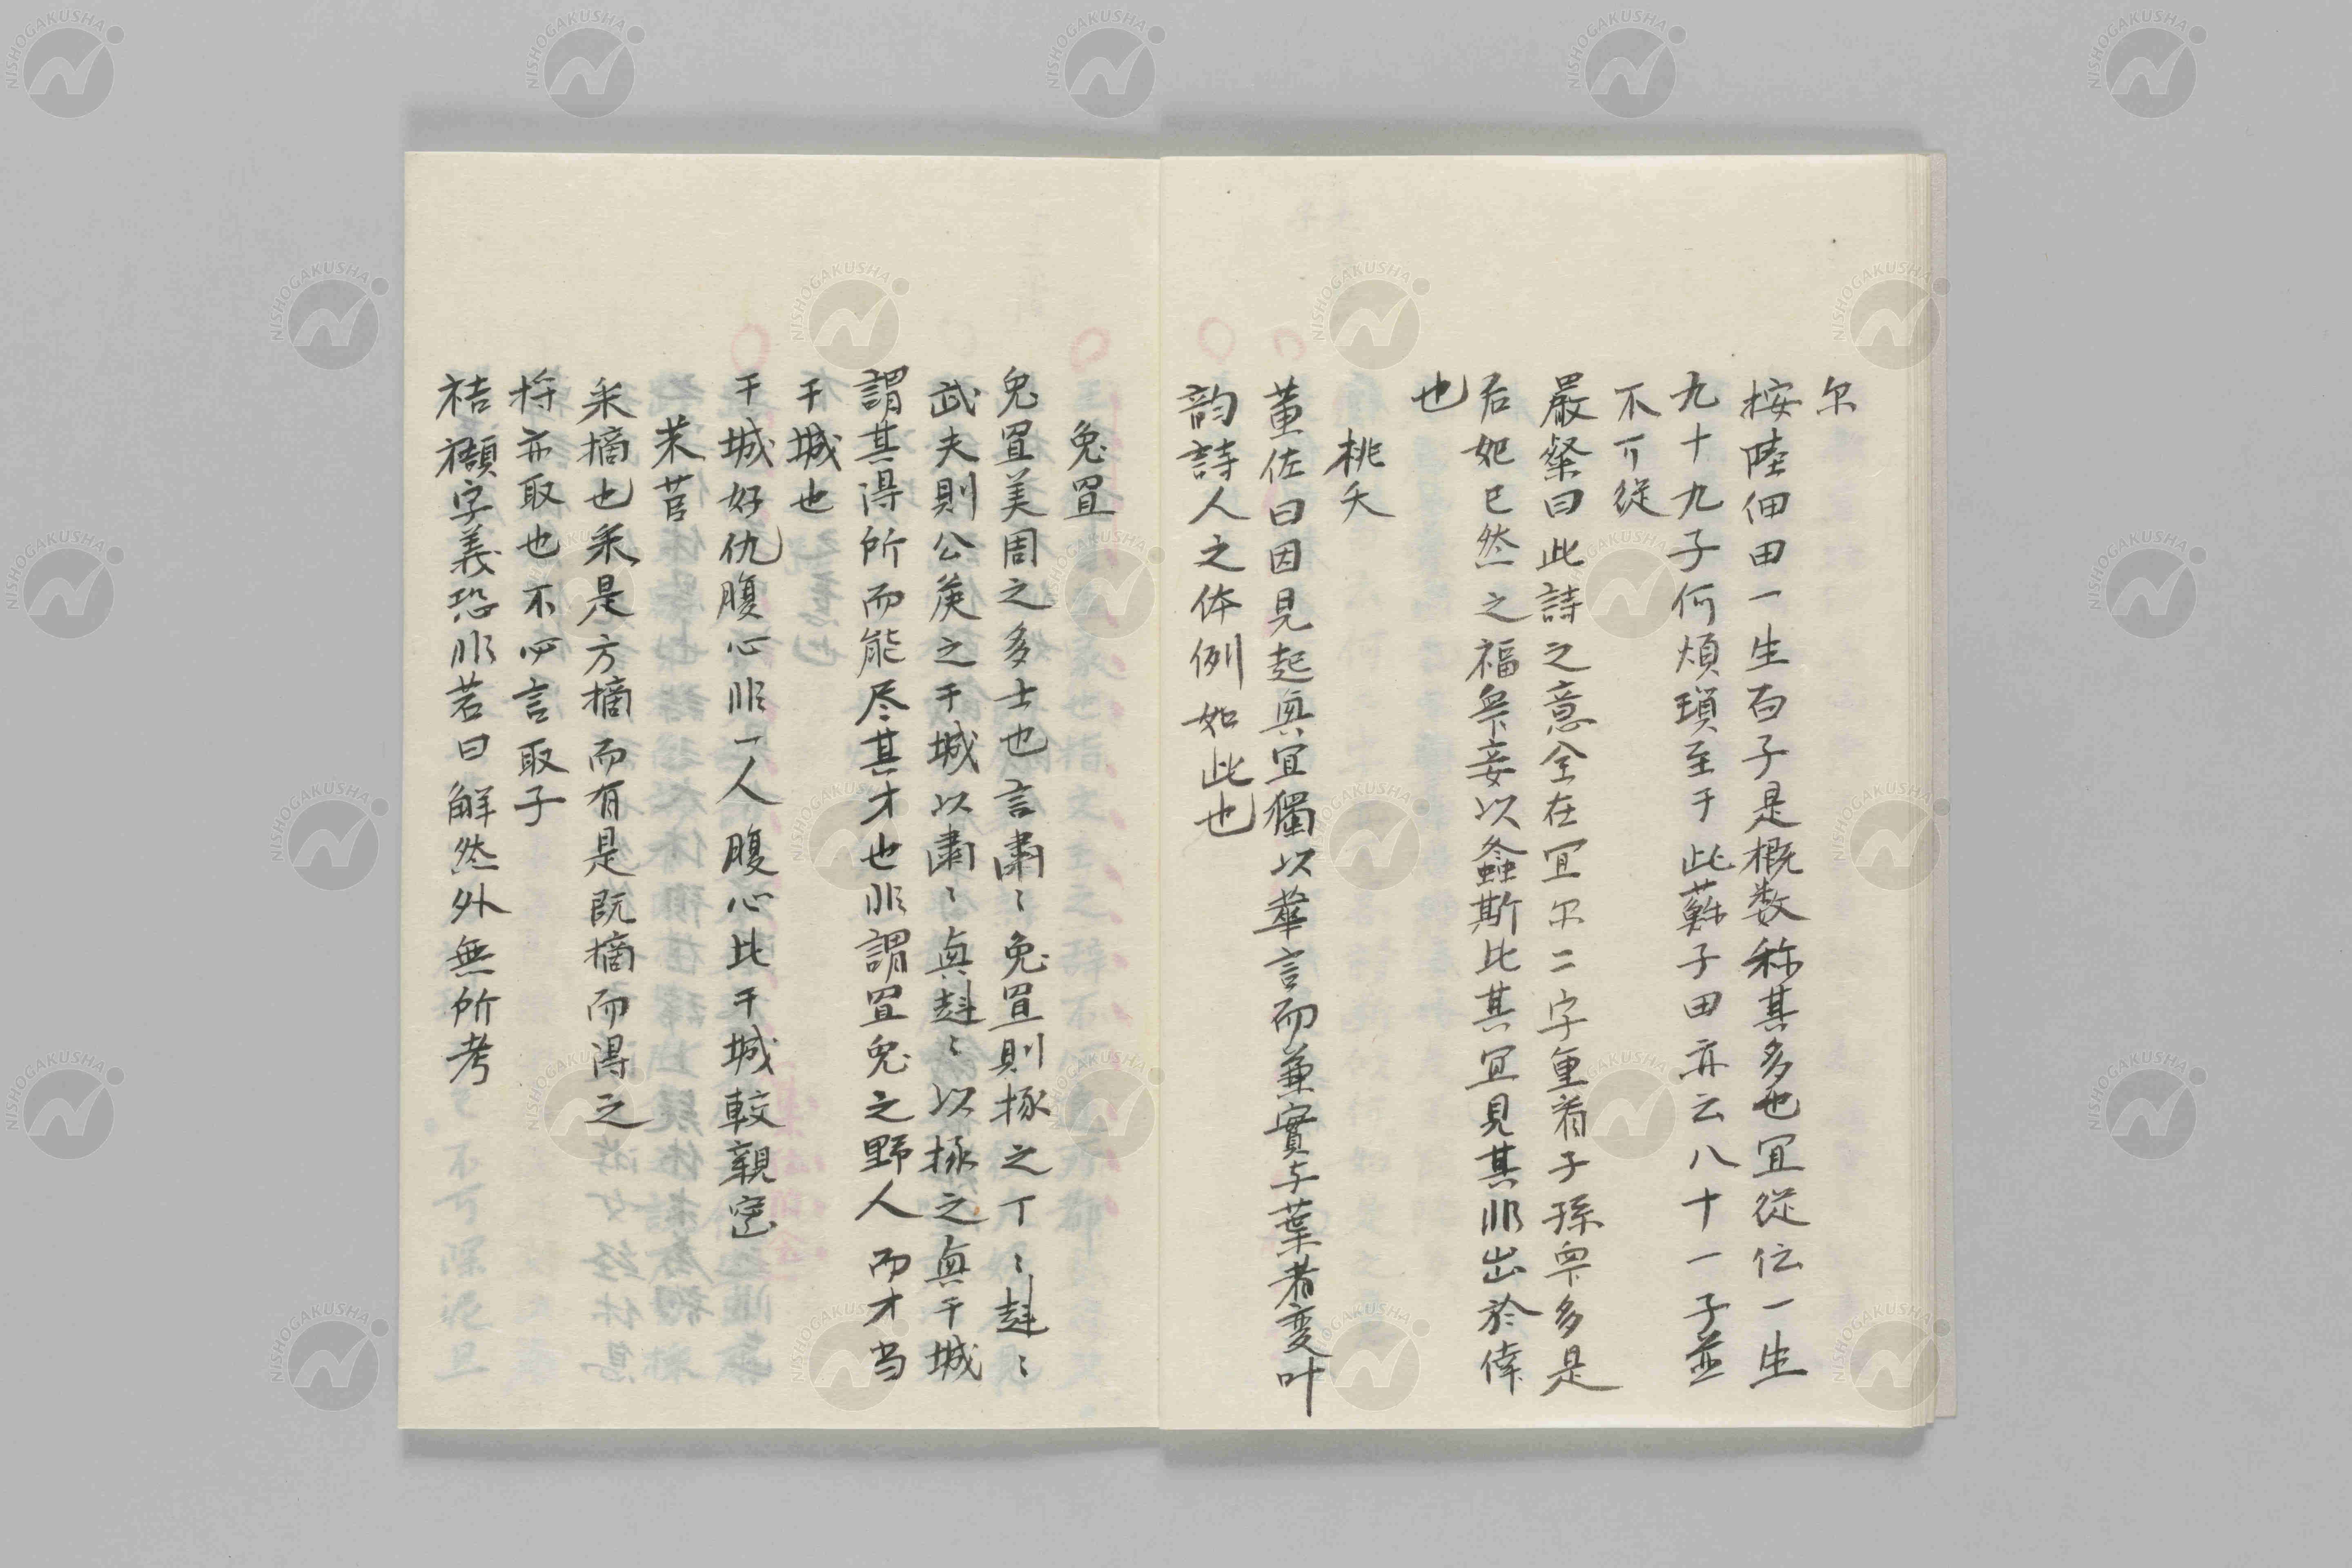 尔
桉陸佃田一生百子是概数称其多也冝從位一生
九十九子何煩瑣至于此蘓子田亦云八十一子並
不可從
嚴粲曰此詩之意全在冝尔二字重着子孫衆多是
后妃已然之福衆妾以螽斯比其冝見其非出於倖
也
桃夭
董佐曰因見起與冝獨以華言而兼實与葉者変叶
韵詩人之体例如此也
兔罝
兔罝美周之多士也言肅〻兔罝則椓之丁〻赳〻
武夫則公矦之干城以肅〻與赳〻以椓之與干城
謂其得所而能尽其才也非謂罝兔之野人而才当
干城也
干城好仇腹心非一人腹心比干城較親密
芣苢
采摘也采是方摘而有是既摘而得之
捋亦取也不必言取子
袺襭字義恐非若曰解然外無所考
NISHOGAKUSHA